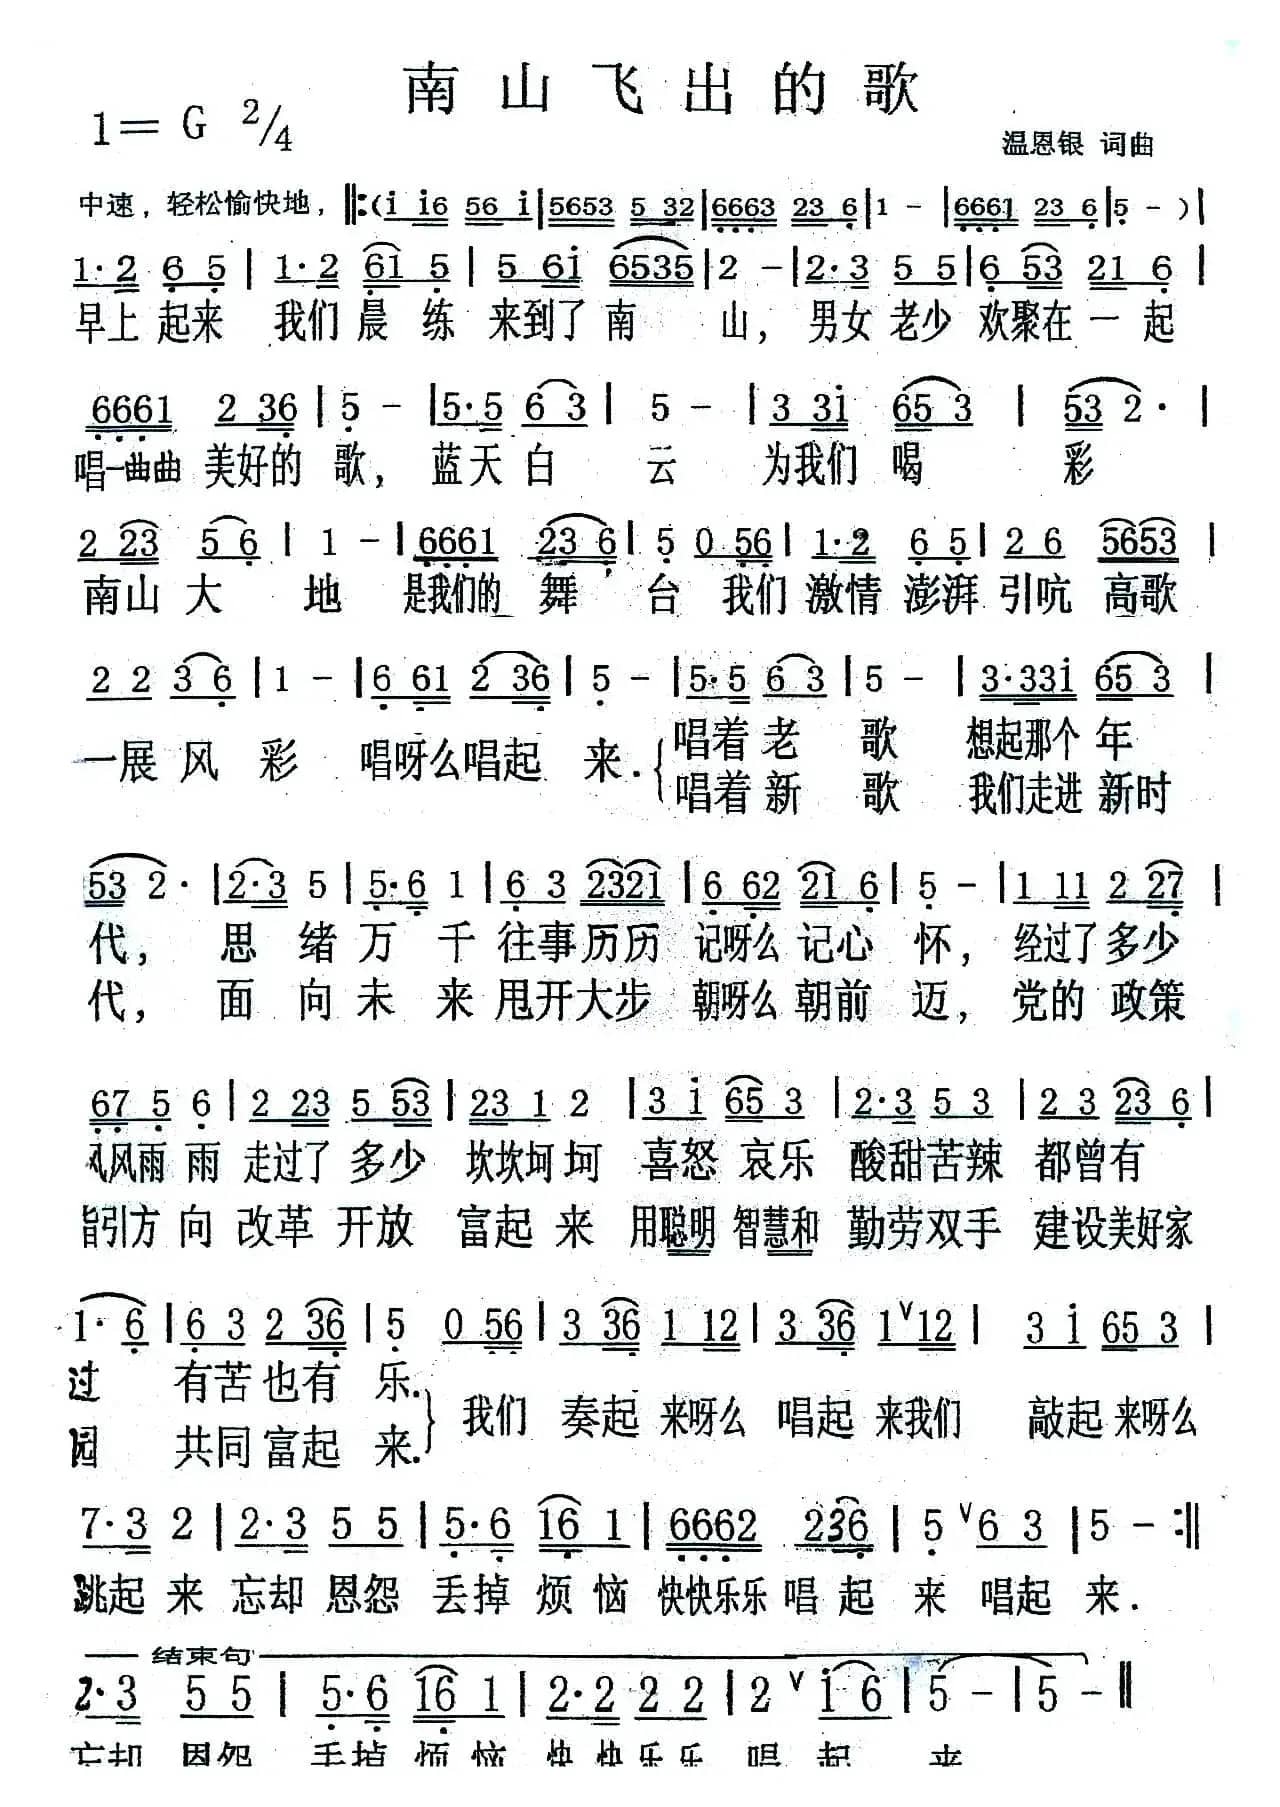 南山飞出的歌
1=G 2/4
温恩银 词曲
中速，轻松愉快地，‖:(i i6 56 i|5653 5 32|6663 23 6|1 -|6661 23 6|5 -)|
1·2 6 5|1·2 61 5|5 6i 6535|2 -|2·3 5 5|6 53 21 6|
早上 起来 我们 晨 练 来到了 南 山，男女 老少 欢聚在 一 起
6661 2 36|5 -|5·5 6 3|5 -|3 3i 65 3|53 2·|
唱一曲曲 美好的 歌，蓝天 白 云 为我们 喝 彩
2 23 5 6|1 -|6661 23 6|5 0 56|1·2 6 5|2 6 5653|
南山 大 地 是我们的 舞 台 我们 激情 澎湃 引吭 高歌
2 2 3 6|1 -|6 61 2 36|5 -|5·5 6 3|5 -|3·33i 65 3|
一展 风 彩 唱呀么 唱起 来.{唱着 老 歌 想起那个 年
唱着 新 歌 我们走进 新时
53 2·|2·3 5|5·6 1|6 3 2321|6 62 21 6|5 -|1 11 2 27|
代，思 绪 万 千 往事 历历 记呀么 记心 怀，经过了 多少
代，面 向 未 来 甩开 大步 朝呀么 朝前 迈，党的 政策
67 5 6|2 23 5 53|23 1 2|3 i 65 3|2·3 5 3|2 3 23 6|
风风雨 雨 走过了 多少 坎坎坷 坷 喜怒 哀乐 酸甜苦辣 都曾有
指引方 向 改革 开放 富起 来 用聪明 智慧和 勤劳双手 建设美好家
1·6|6 3 2 36|5 0 56|3 36 1 12|3 36 1∨12|3 i 65 3|
过 有苦也有 乐.}我们 奏起 来呀么 唱起 来我们 敲起 来呀么
园 共同富起 来.
7·3 2|2·3 5 5|5·6 16 1|6662 236|5∨6 3|5 -:‖
跳起 来 忘却 恩怨 丢掉 烦恼 快快乐乐 唱起 来 唱起 来.
结束句
2·3 5 5|5·6 16 1|2·2 2 2|2∨i 6|5 -|5 -‖
忘却 恩怨 丢掉 烦恼 快快乐乐 唱起 来